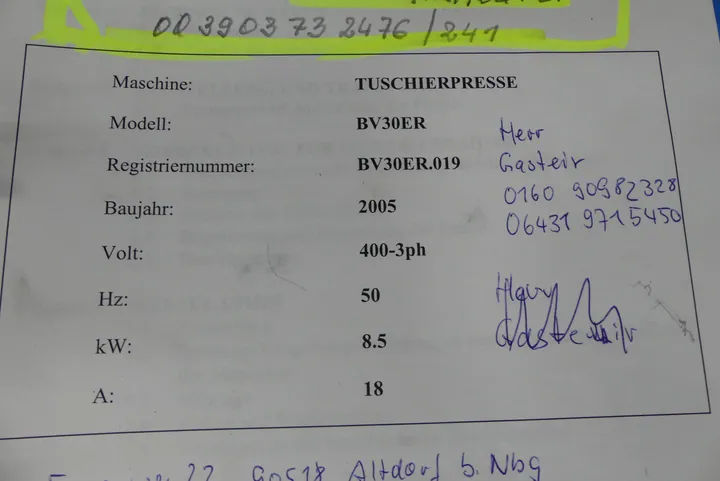 00 3903 73 2476/241
Maschine: TUSCHIERPRESSE
Modell: BV30ER
Registriernummer: BV30ER.019
Baujahr: 2005
Volt: 400-3ph
Hz: 50
kW: 8.5
A: 18
Herr
Gasteir
0160 90982328
06431 9715450
90518 Altdorf b. Nbg